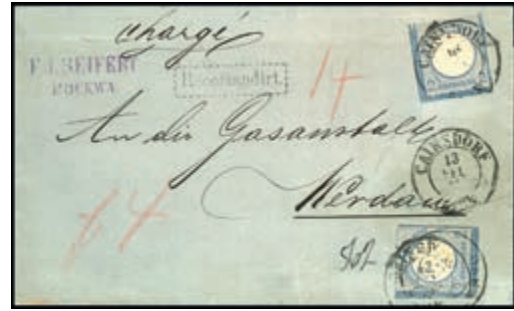 chargé
F. J. SEIFERT
BOCKWA
Recomandirt.
14
CAINSDORF
An die Gasanstalt
CAINSDORF
13
Werdau
64